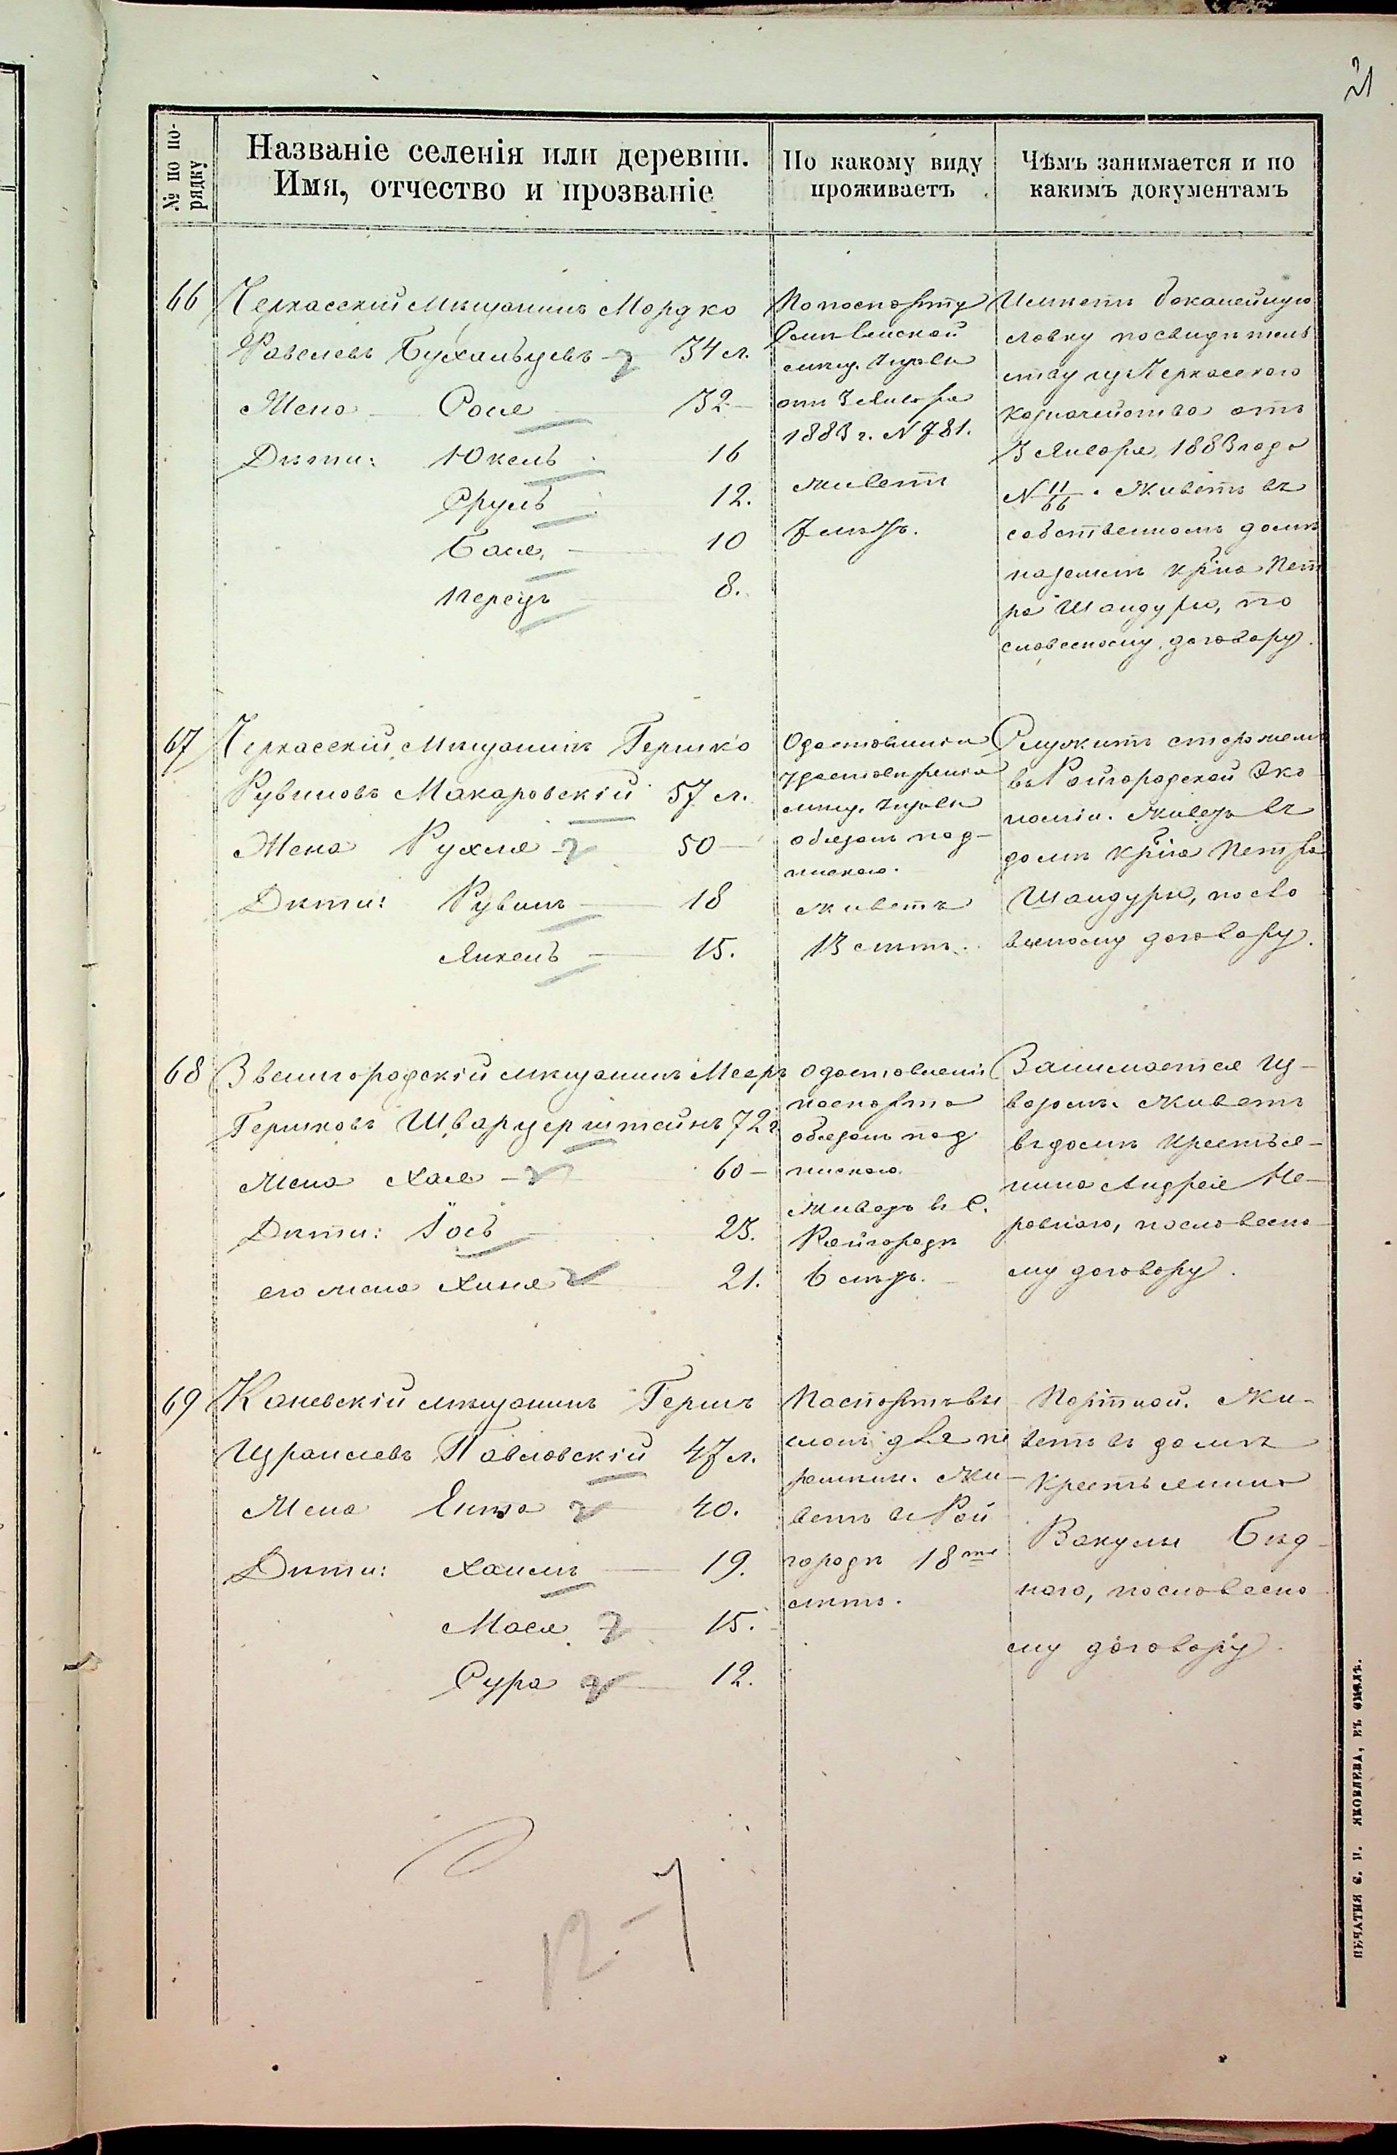 21
№ по по-
рядку
Названіе селенія или деревни.
Имя, отчество и прозваніе
По какому виду
проживаетъ
Чѣмъ занимается и по
какимъ документамъ
66
Черкасскій мѣщанинъ Мордко
Бухальцевъ 34 л.
Жена Рося 32
Дѣти: Юкель 16
Сруль 12.
Бася 10
Перецъ 8.
По паспорту
мѣщ. Управы
отъ 3 Января
1883 г. N 781.
живетъ
7 мѣс.
Имѣетъ бакалейную
лавку по свидѣтель
ству изъ Черкасскаго
казначейства отъ
3 Января 1883 года
N 11/66. Живетъ въ
собственномъ домѣ
на землѣ кр-на Пет
ра Шандуры, по
словесному договору.
67
Черкасскій мѣщанинъ Гершко
Рувиновъ Макаровскій 57 л.
Жена Рухля 50
Дѣти: Рувинъ 18
Янкель 15.
О доставленіи
удостовѣренія
мѣщ. Управы
обязанъ под-
пискою.
живетъ
13 лѣтъ.
Служитъ сторожемъ
въ Райгородской Эко
номіи. Живетъ въ
домѣ кр-на Петра
Шандуры, по сло
весному договору.
68
Звенигородскій мѣщанинъ Мееръ
Гершковъ Шварцерштейнъ 72 г.
Жена Хая 60
Дѣти: Іось 23.
его жена Хиня 21.
О доставленіи
паспорта
обязанъ под
пискою.
Живетъ въ с.
Райгородѣ
6 мѣс.
Занимается из-
возомъ. Живетъ
въ домѣ крестья-
нина Андрея Не-
ровнаго, по словесно
му договору.
69
Каневскій мѣщанинъ Гершъ
Израилевъ Павловскій 47 л.
Жена Ента 40.
Дѣти: Хаимъ 19.
Мася 15.
Сура 12.
Паспортъ вы
сланъ для пе
ремѣны. Жи-
ветъ въ Рай
городѣ 18ть
лѣтъ.
Портной. Жи-
ветъ въ домѣ
крестьянина
Вакулы Бѣд-
наго, по словесно
му договору.
12-7
ПЕЧАТНЯ С. И. ЯКОВЛЕВА, ВЪ СМѢЛѢ.